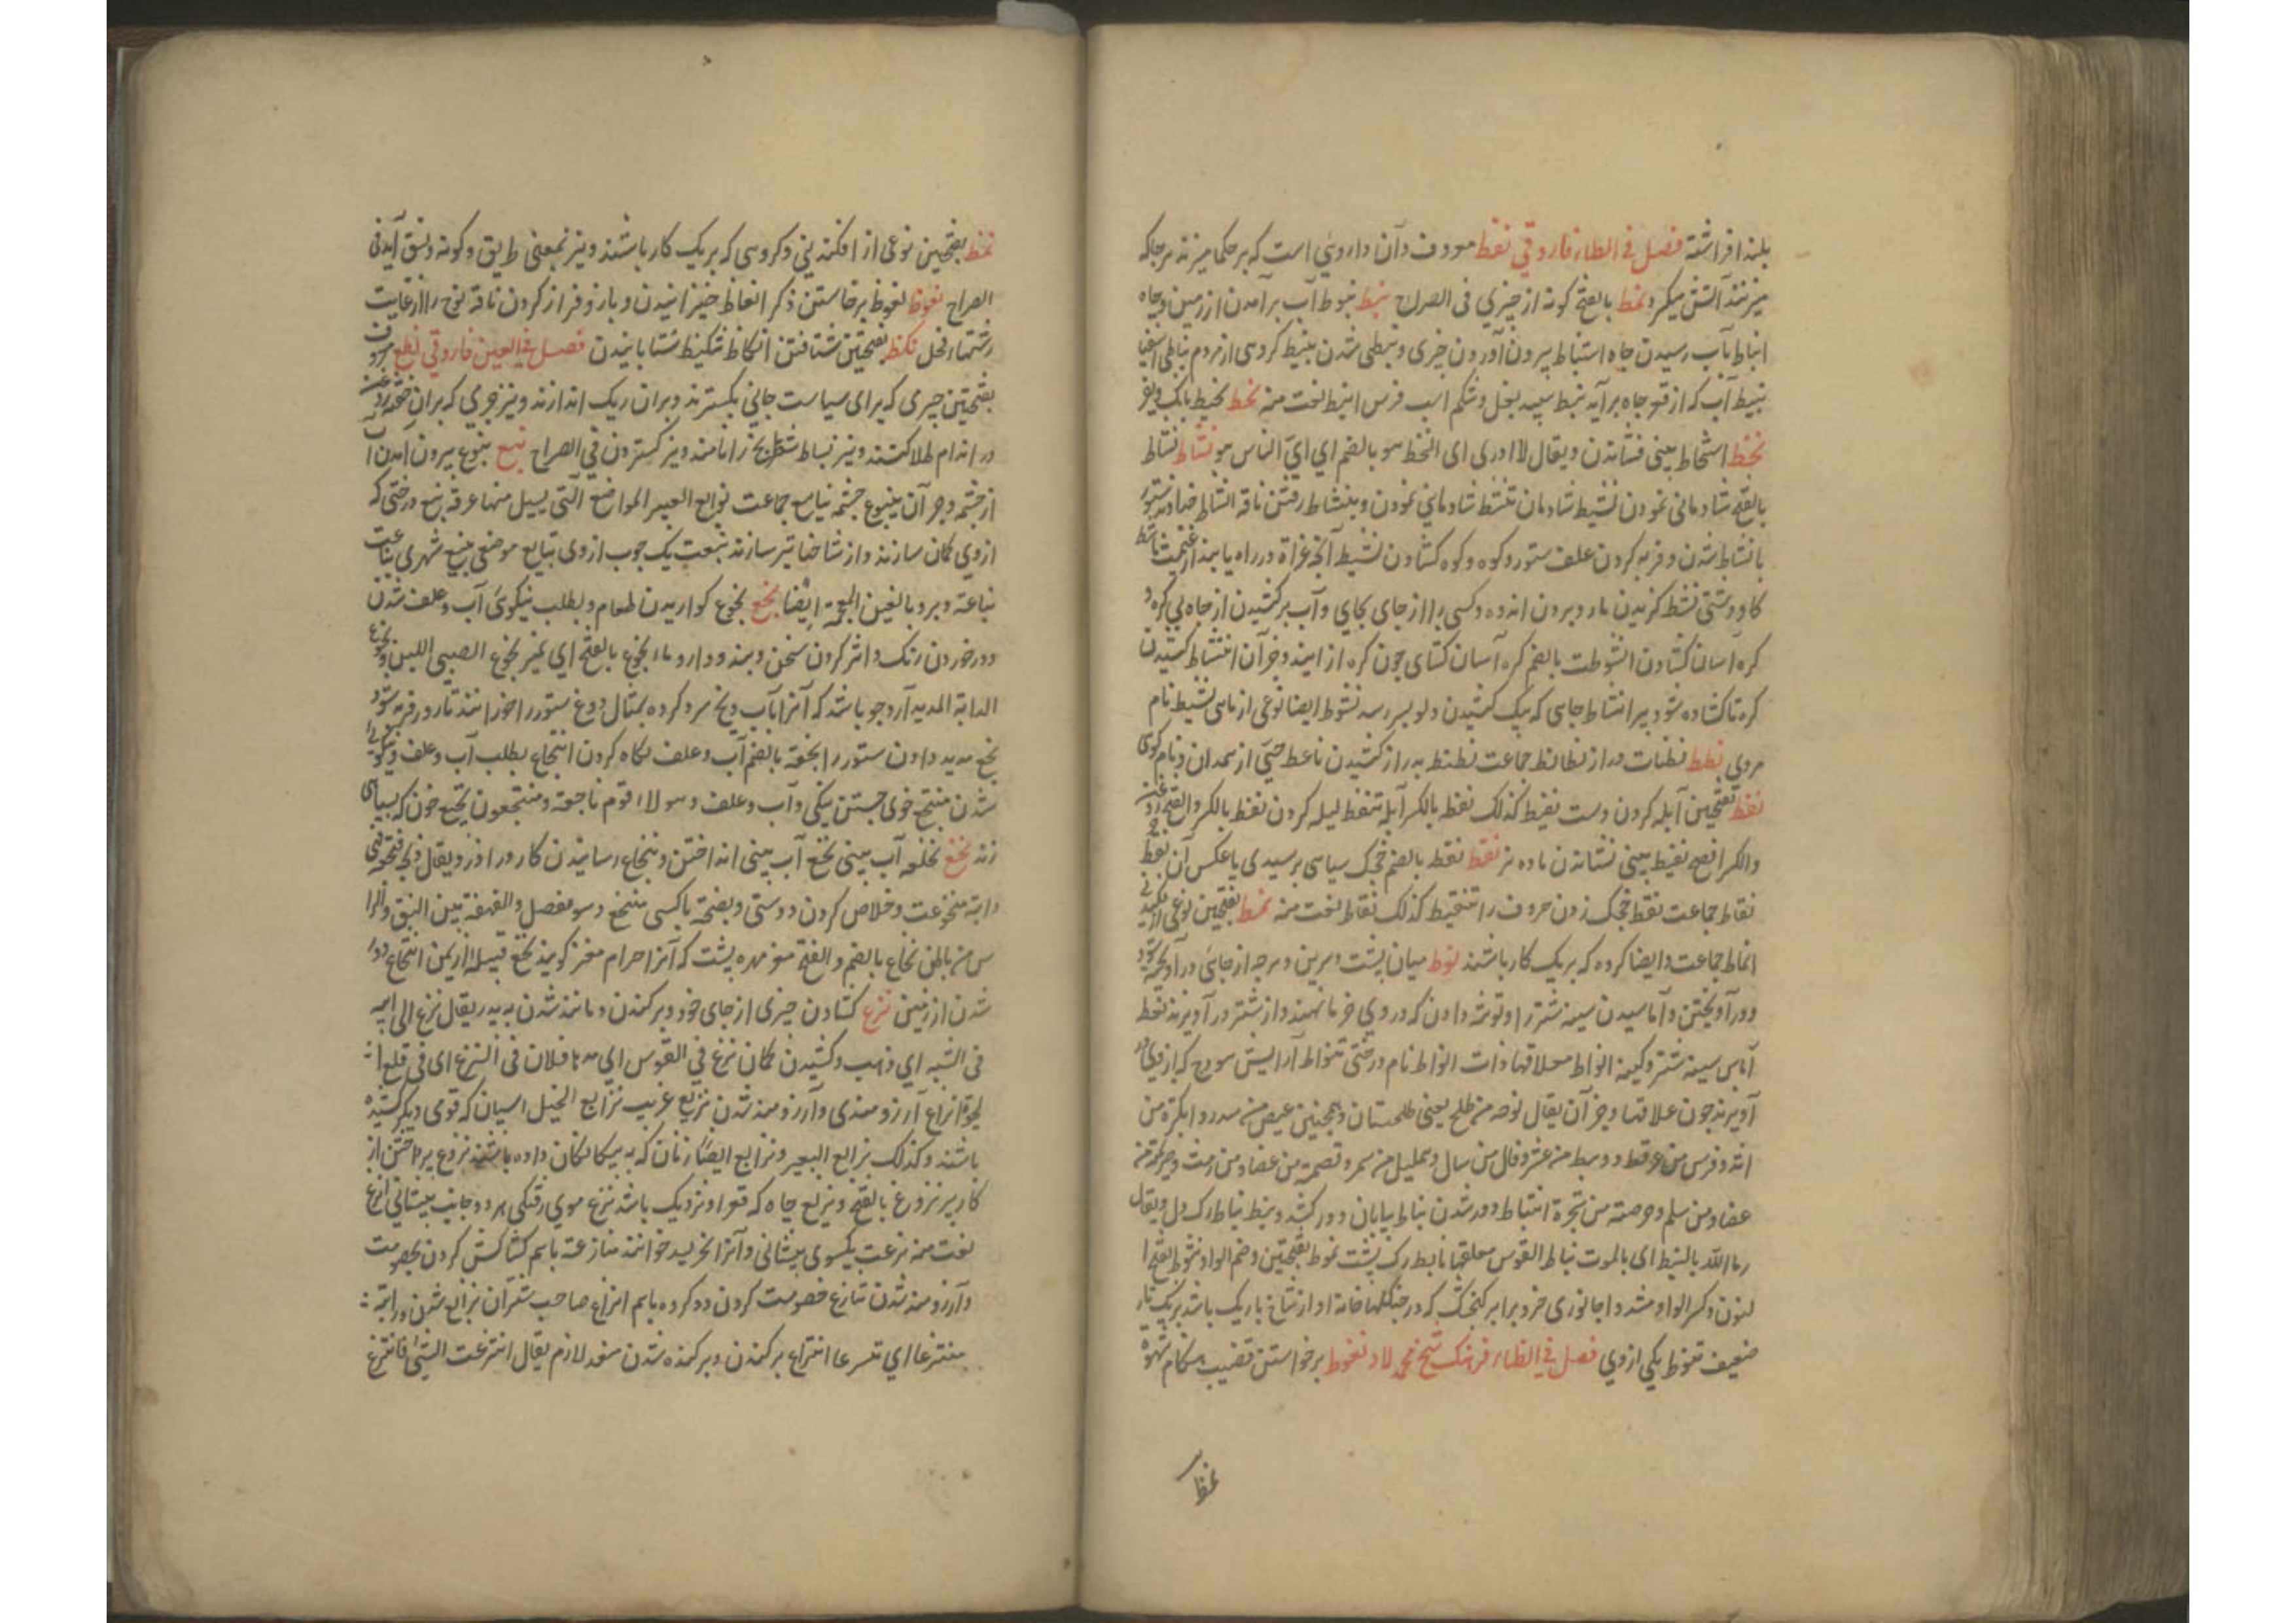 بلند افراشته فصل فی الطاء فاروقی نفط معروف و آن دارویی است که بر حکما میزنند هر جا که
میزنند آتش میگیرد نمط بالفتح کونه از چیزی فی الصراح نبط نبوط آب بر آمدن از زمین و چاه
انباط بآب رسیدن چاه استنباط بیرون آوردن چیزی و نبطی شدن نبیط کروهی از مردم نباطی
نبیط آب که از قعر چاه بر آید نبط سپید بغل و شکم اسب فرس انبط نعت منه نحط نحیط بانک
نخط انتخاط بینی فشاندن و یقال لا ادری ای النخط هو بالضم ای ای الناس هو نشاط نشاط
بالفتح شادمانی نمودن نشیط شادمان تنشط شادمانی نمودن و بنشاط رفتن ناقه انشاط خداوند ستور
با نشاط شدن و فربه کردن علف ستور و کره کشادن نشیط آنچه غزاة در راه یابند از غنیمت
کاو دشتی نشط کزیدن مار و برون اندوه و کسی را از جای بجای و آب بر کشیدن از چاه بی
کره آسان کشادن انشوطت بالضم کره آسان کشای چون کره ازار بند و جز آن انتشاط کشیدن
کره تا کشاده شود بیر انشاط چاهی که بیک کشیدن دلو بسر رسد نشوط ایضا نوعی از ماهی نشیط نام
مردی نطط نطناط دراز نطانط جماعت نطنط بدراز کشیدن ناعط حی از همدان و نام کوهی
نفط بفتحتین آبله کردن دست نفیط کذلک نفط بالکسر آبله تنفط آبله کردن نفط بالکسر والفتح
والکسر افصح نفیط بینی فشاندن ماده بز نقط نقط بالضم خجک سیاهی بر سپیدی یا عکس آن نقط
نقاط جماعت نقط خجک زدن حروف را تنقیط کذلک نقاط نعت منه نمط بفتحتین نوعی
انماط جماعت و ایضا کروه که بر یک کار باشند نوط میان پشت و سرین و هر چه از جائی در آویخته
و در آویختن و آماسیدن سینه شتر را و توشه دادن که در وی خرما نهند و از شتر در آویزند
آماس سینه شتر و کیمه انواط معلاقها ذات انواط نام درختی تنواط آرایش هودج که از وی
آویزند چون علاقها و جز آن یقال نوطه من طلح یعنی طلحستان و همچنین عیص من سدر و ایکة من
اثل و فرس من عرفط و وهط من عشر و فال من سال و سلیل من سمر و قصیمه من غضا و من رمث
غضا و من سلم و حرجه من شجرة انتیاط دور شدن نیاط بیابان دور کشد و نیط نیاط رک دل و یقال
رماه الله بالنیط ای بالموت نیاط القوس معلقها نایط رک پشت تنوط بفتحتین و ضم الواو
لنون و کسر الواو مشدداً جانوری خرد برابر کنجشک که در جنگلها خانه او از شاخ باریک باشد
ضعیف تنوط یکی از وی فصل فی الظاء فرهنک شیخ محمد لاد نعوظ برخواستن قضیب هنکام شهوة
نمظ
نمط بفتحتین نوعی از افکندنی و کروهی که بر یک کار باشند و نیز بمعنی طریق و کونه و نسق آید فی
الصراح نعوظ نعوظ برخاستن ذکر انعاظ خیزانیدن و باز و فراز کردن ناقه فرج را از غایت
شهتاء فحل نکظ بفتحتین شتافتن انکاظ تنکیظ شتابانیدن فصل فی العین فاروقی نطع معروف
بفتحتین چیزی که برای سیاست جانی بکسترند و بران ریک اندازند و نیز چرمی که بران
در اندام طلا کنند و نیز بساط شطرنج را نامند و نیز کستردن فی الصراح نبع نبوع بیرون آمدن آب
از چشمه و جز آن ینبوع چشمه ینابیع جماعت نوابع البعیر المواضع التی یسیل منها عرقه نبع درختی که
از وی کمان سازند و از شاخها تیر سازند نبعت یک چوب از وی نبایع موضعی ینبع شهری
نباعة و برد بالغین المعجمة ایضا نجع نجوع کواریدن طعام و بطلب نیکوئی آب و علف شدن
و در خوردن رنک و اثر کردن سخن و پند و دارو ماء نجوع بالفتح ای نمیر نجوع الصبی اللبن و نجوع
الدابة المدید آرد جو باشد که آنرا بآب و یخ سرد کرده بمثال دوغ ستور را خورانند تا زود فربه شود
نجع مدید دادن ستور را نجعة بالضم آب و علف نکاه کردن انتجاع بطلب آب و علف و نیکوئی
شدن منتجع خوی جستن نیکی و آب و علف و هولاء قوم ناجعة و منتجعون نجیع خون که بسیاهی
زند نخع نخاعه آب بینی نخع آب بینی انداختن و نخاع رسانیدن کارد را و یقال
دابة منخوعت و خلاص کردن دوستی و نصیحة با کسی منخع و هو مفصل والفهقة بین العنق والرا
س من باطن نخاع بالضم والفتح مغز مهره پشت که آنرا حرام مغز کویند نخع قبیله از یمن انتخاع دور
شدن از زمین نزع کشادن چیزی از جای خود و بر کندن و مانند شدن به پدر یقال نزع الی ابیه
فی الشبه ای ذهب و کشیدن کمان نزع فی القوس ای مد ها فلان فی النزع ای فی قلع ا
لحیوة انزاع آرزومندی و آرزومند شدن نزیع غریب نزایع الخیل اسپان که قومی دیکر کشیده
باشند و کذلک نزایع البعیر و نزایع ایضا زنان که به بیکانکان داده باشند نزوع پرداختن از
کار بیر نزوع بالفتح و نزیع چاه که قعر او نزدیک باشد نزع موی رفتکی هر دو جانب پیشانی انزع
نعت منه نزعت یکسوی پیشانی و آنرا لخرید خوانند منازعة باهم کشاکش کردن بخصومت
و آرزومند شدن تنازع خصومت کردن دو کروه باهم انزاع صاحب شتران نزاع شدن و رایته
منتزعا ای متسرعا انتزاع بر کندن و بر کنده شدن متعد لازم یقال انتزعت الشیء فانتزع